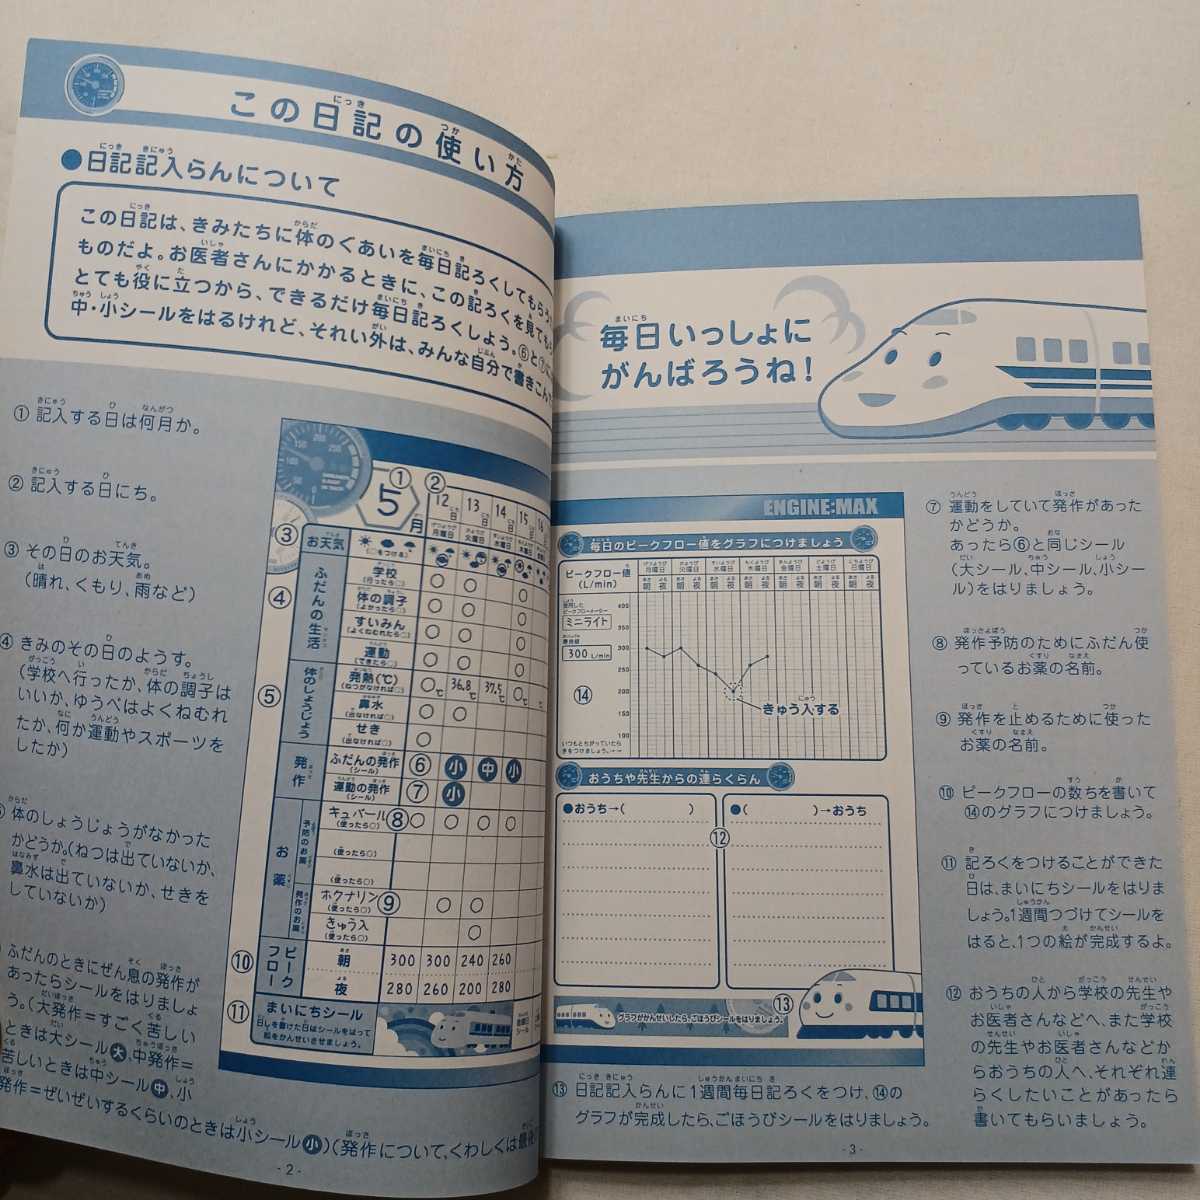 この日記の使い方
●日記記入らんについて
この日記は、きみたちに体のぐあいを毎日記ろくしてもらう
ものだよ。お医者さんにかかるときに、この記ろくを見ても
とても役に立つから、できるだけ毎日記ろくしよう。⑥と⑦に
中・小シールをはるけれど、それい外は、みんな自分で書きこん
① 記入する日は何月か。
② 記入する日にち。
③ その日のお天気。
(晴れ、くもり、雨など)
④ きみのその日のようす。
(学校へ行ったか、体の調子は
いいか、ゆうべはよくねむれ
たか、何か運動やスポーツを
したか)
体のしょうじょうがなかった
かどうか。(ねつは出ていないか、
鼻水は出ていないか、せきを
していないか)
ふだんのときにぜん息の発作が
あったらシールをはりましょ
う。(大発作=すごく苦しい
ときは大シール大、中発作=
苦しいときは中シール中、小
発作=ぜいぜいするくらいのときは小シール小)(発作について、くわしくは最後
- 2 -
① ②
5月
12日 13日 14日 15日 16
月曜日 火曜日 水曜日 木曜日
③ お天気
(○をつける)
④ ふだんの生活
学校
(行ったら○)
体の調子
(よかったら○)
すいみん
(よくねむれたら○)
運動
(できたら○)
⑤ 体のしょうじょう
発熱(℃)
(ねつがなければ○)
○℃ 36.8℃ 37.5℃ ○℃
鼻水
(出なければ○)
せき
(出なければ○)
発作
ふだんの発作 ⑥ 小 中 小
(シール)
運動の発作 ⑦ 小
(シール)
お薬
予防のお薬
キュバール ⑧ ○ ○ ○ ○
(使ったら○)
(使ったら○)
(使ったら○)
発作のお薬
ホクナリン ⑨ ○ ○
(使ったら○)
きゅう入 ○
(使ったら○)
⑩ ピークフロー
朝 300 300 240 260
夜 280 260 200 280
⑪ まいにちシール
日しを書けた日はシールをはって
絵をかんせいさせましょう。
毎日いっしょに
がんばろうね!
ENGINE:MAX
毎日のピークフロー値をグラフにつけましょう
ピークフロー値
(L/min)
月曜日 火曜日 水曜日 木曜日 金曜日 土曜日 日曜日
朝 夜 朝 夜 朝 夜 朝 夜 朝 夜 朝 夜 朝 夜
使用した
ピークフローメーター
ミニライト
300 L/min
400
350
300
250
200
150
100
⑭
きゅう入する
いつもとちがっていたら
きをつけましょう。
おうちや先生からの連らくらん
●おうち→( )
●( )→おうち
⑫
⑬
グラフがかんせいしたら、ごほうびシールをはりましょう。
⑬ 日記記入らんに1週間毎日記ろくをつけ、⑭の
グラフが完成したら、ごほうびシールをはりましょう。
⑦ 運動をしていて発作があった
かどうか。
あったら⑥と同じシール
(大シール、中シール、小シー
ル)をはりましょう。
⑧ 発作予防のためにふだん使
っているお薬の名前。
⑨ 発作を止めるために使った
お薬の名前。
⑩ ピークフローの数ちを書いて
⑭のグラフにつけましょう。
⑪ 記ろくをつけることができた
日は、まいにちシールをはりま
しょう。1週間つづけてシールを
はると、1つの絵が完成するよ。
⑫ おうちの人から学校の先生や
お医者さんなどへ、また学校
の先生やお医者さんなどか
らおうちの人へ、それぞれ連
らくしたいことがあったら
書いてもらいましょう。
- 3 -